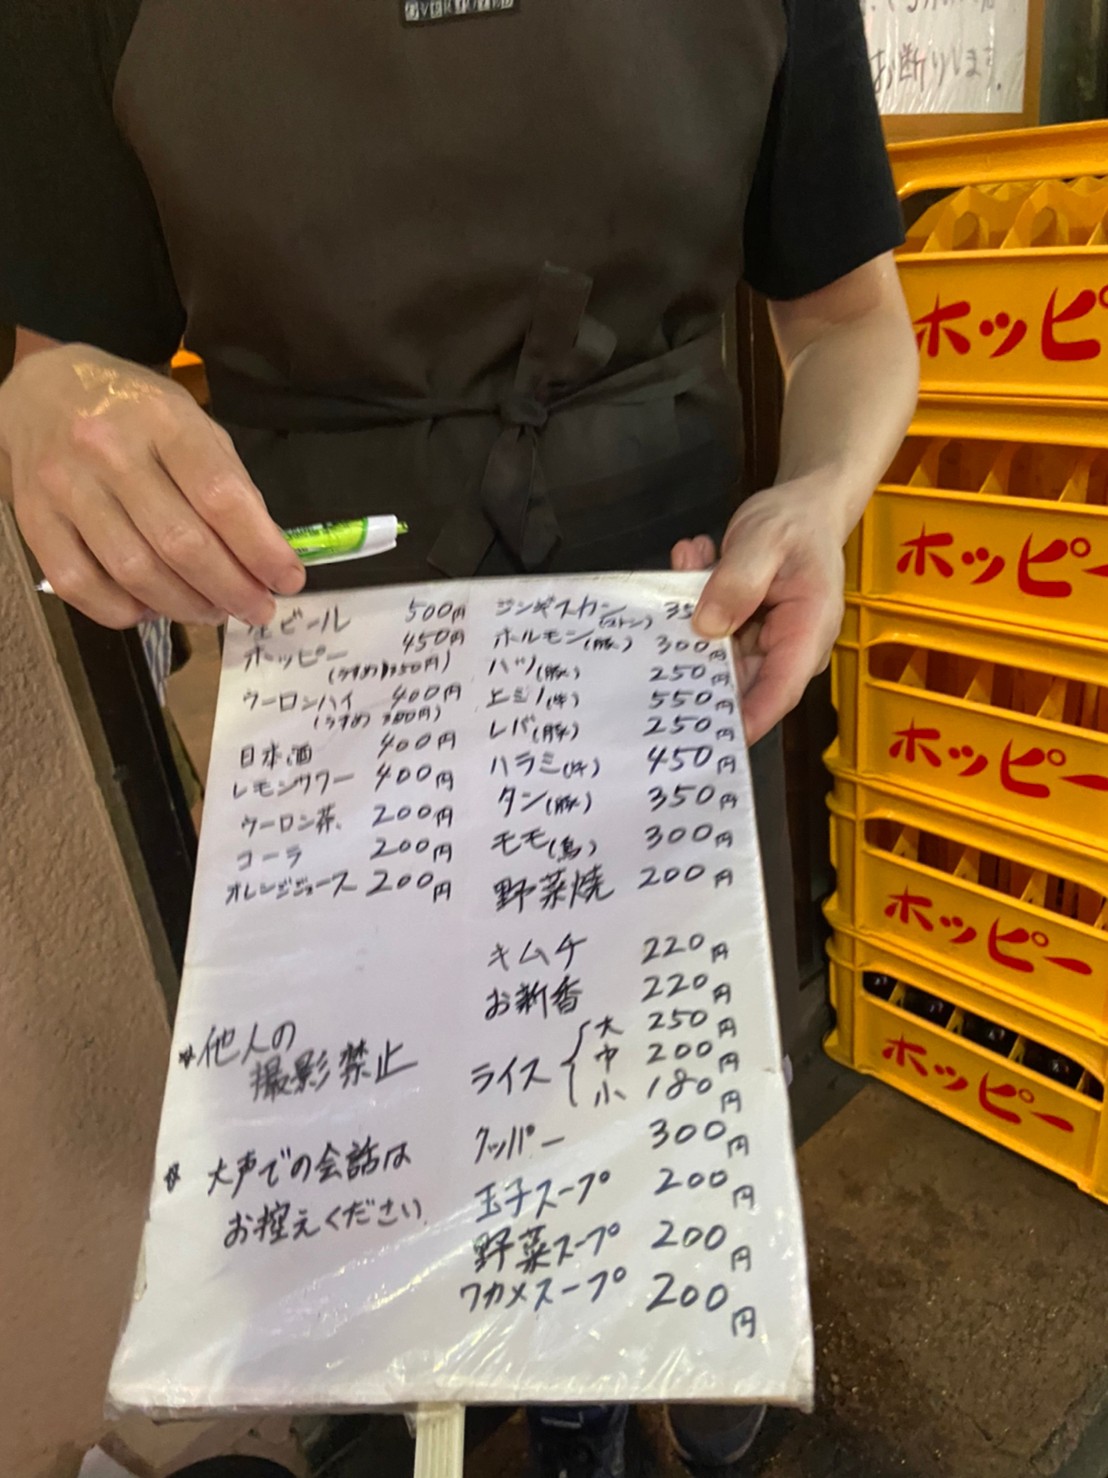 お断りします。
生ビール 500円
ホッピー 450円
(うすめ 350円)
ウーロンハイ 400円
(うすめ 300円)
日本酒 400円
レモンサワー 400円
ウーロン茶 200円
コーラ 200円
オレンジジュース 200円
※他人の
撮影禁止
※大声での会話は
お控えください
ジンギスカン 35
ホルモン(豚) 300円
ハツ(豚) 250円
上ミノ(牛) 550円
レバ(豚) 250円
ハラミ(牛) 450円
タン(豚) 350円
モモ(鳥) 300円
野菜焼 200円
キムチ 220円
お新香 220円
ライス 大 250円
中 200円
小 180円
クッパー 300円
玉子スープ 200円
野菜スープ 200円
ワカメスープ 200円
ホッピ
ホッピー
ホッピー
ホッピー
ホッピー